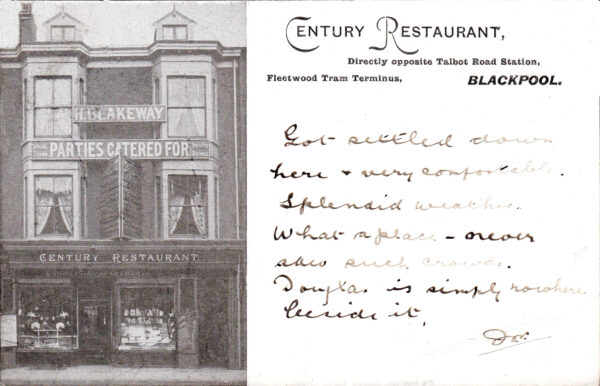 H. BLAKEWAY
PARTIES CATERED FOR
CENTURY RESTAURANT
COMMERCIAL APARTMENTS
CENTURY RESTAURANT,
Directly opposite Talbot Road Station,
Fleetwood Tram Terminus,
BLACKPOOL.
Got settled down
here + very comfortable.
Splendid weather.
What a place – never
saw such crowds.
Douglas is simply nowhere
beside it.